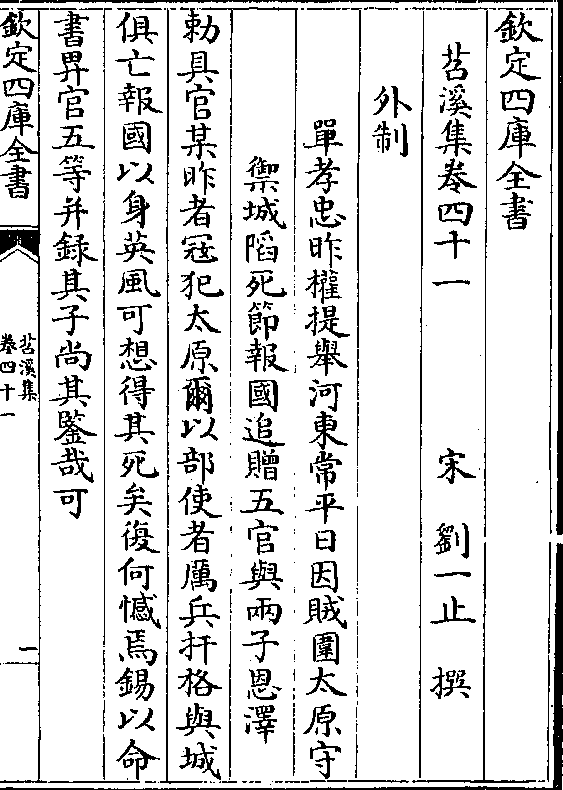 欽定四庫全書
苕溪集卷四十一　宋　劉一止　撰
外制
單孝忠昨權提舉河東常平日因賊圍太原守
禦城陷死節報國追贈五官與兩子恩澤
勅具官某昨者冦犯太原爾以部使者厲兵扞格與城
俱亡報國以身英風可想得其死矣復何憾焉錫以命
書畀官五等并録其子尚其鑒哉可
欽定四庫全書
苕溪集
卷四十一
一